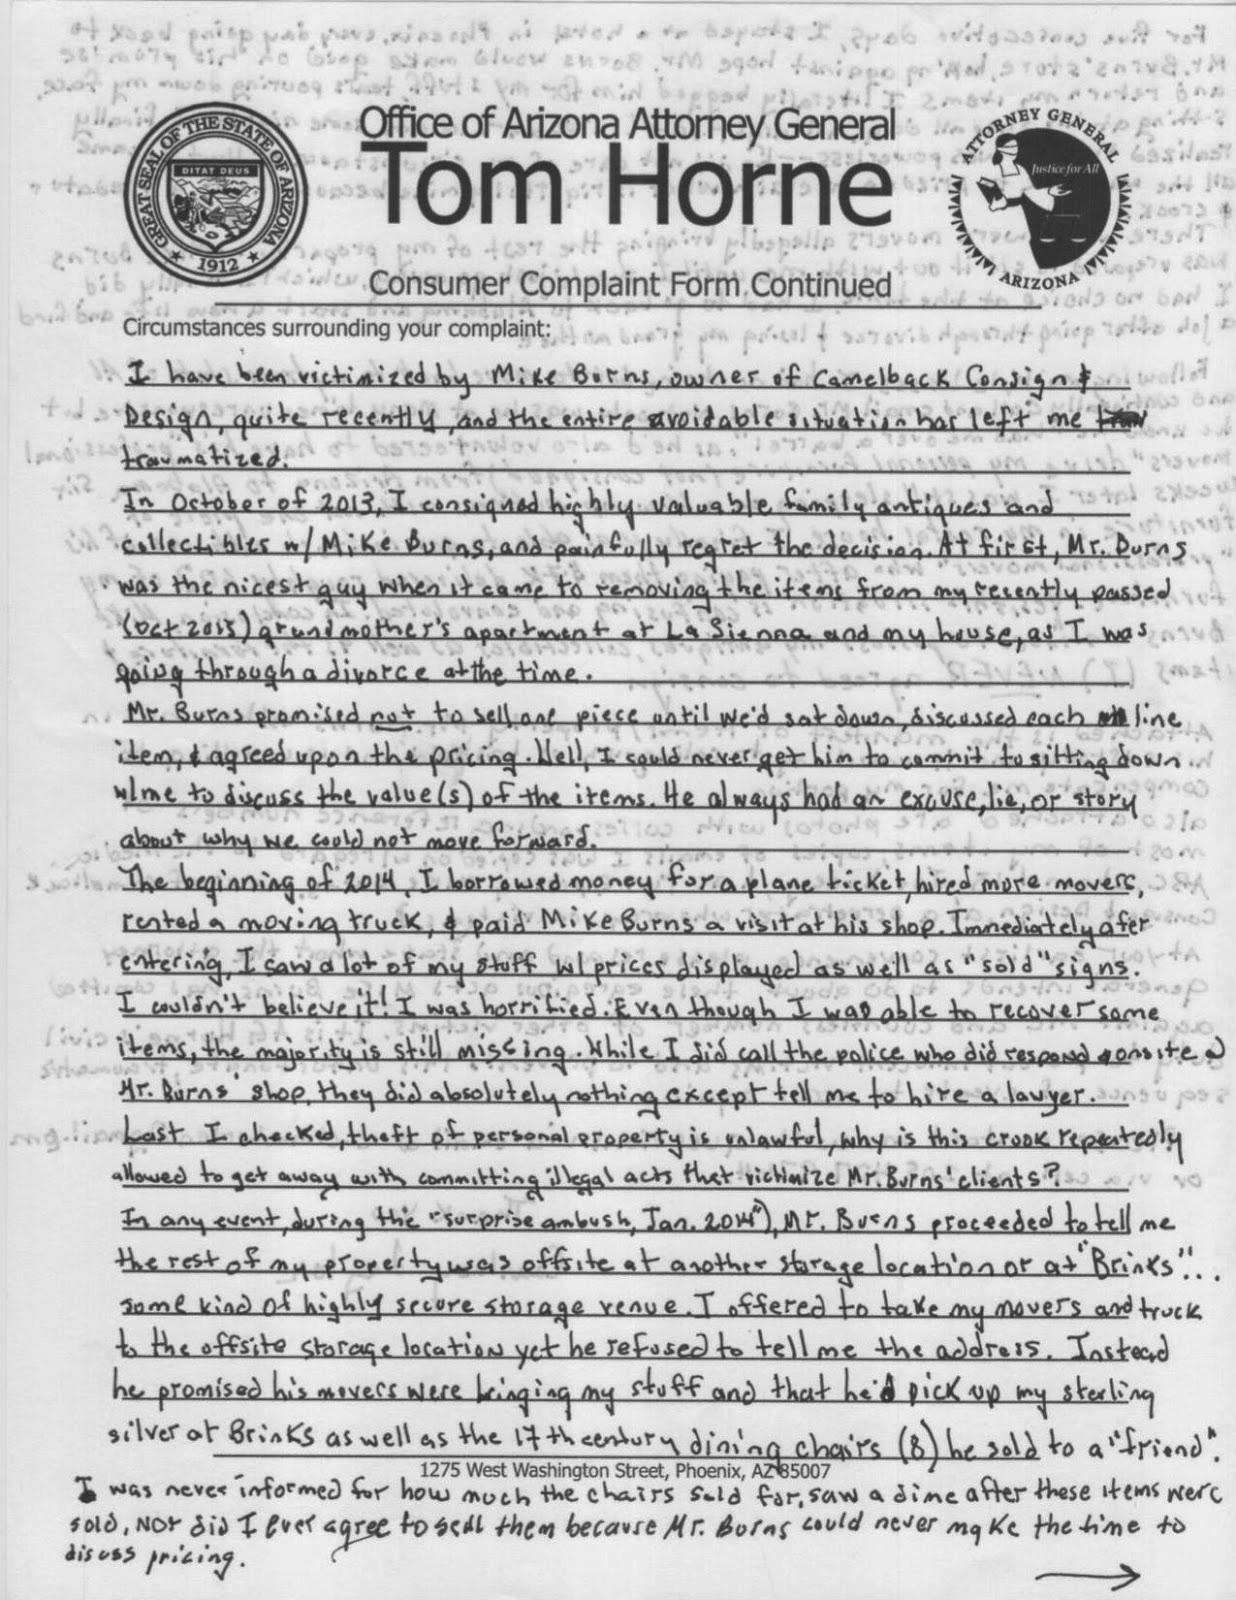 Office of Arizona Attorney General
Tom Horne
GREAT SEAL OF THE STATE OF ARIZONA
DITAT DEUS
1912
ATTORNEY GENERAL
Justice for All
ARIZONA
Consumer Complaint Form Continued
Circumstances surrounding your complaint:
I have been victimized by Mike Burns, owner of Camelback Consign &
Design, quite recently, and the entire avoidable situation has left me
traumatized.
In October of 2013, I consigned highly valuable family antiques and
collectibles w/ Mike Burns, and painfully regret the decision. At first, Mr. Burns
was the nicest guy when it came to removing the items from my recently passed
(Oct 2013) grandmother's apartment at La Sienna and my house, as I was
going through a divorce at the time.
Mr. Burns promised not to sell one piece until we'd sat down, discussed each line
item, & agreed upon the pricing. Well, I could never get him to commit to sitting down
w/me to discuss the value(s) of the items. He always had an excuse, lie, or story
about why we could not move forward.
The beginning of 2014, I borrowed money for a plane ticket, hired more movers,
rented a moving truck, & paid Mike Burns a visit at his shop. Immediately after
entering, I saw a lot of my stuff w/ prices displayed as well as "sold" signs.
I couldn't believe it! I was horrified. Even though I was able to recover some
items, the majority is still missing. While I did call the police who did respond onsite @
Mr. Burns' shop, they did absolutely nothing except tell me to hire a lawyer.
Last I checked, theft of personal property is unlawful, why is this crook repeatedly
allowed to get away with committing illegal acts that victimize Mr. Burns' clients?
In any event, during the "surprise ambush, Jan. 2014"), Mr. Burns proceeded to tell me
the rest of my property was offsite at another storage location or at "Brinks"...
some kind of highly secure storage venue. I offered to take my movers and truck
to the offsite storage location yet he refused to tell me the address. Instead
he promised his movers were bringing my stuff and that he'd pick up my sterling
silver at Brinks as well as the 17th century dining chairs (8) he sold to a "friend".
1275 West Washington Street, Phoenix, AZ 85007
I was never informed for how much the chairs sold for, saw a dime after these items were
sold, NOR did I ever agree to sell them because Mr. Burns could never make the time to
discuss pricing.